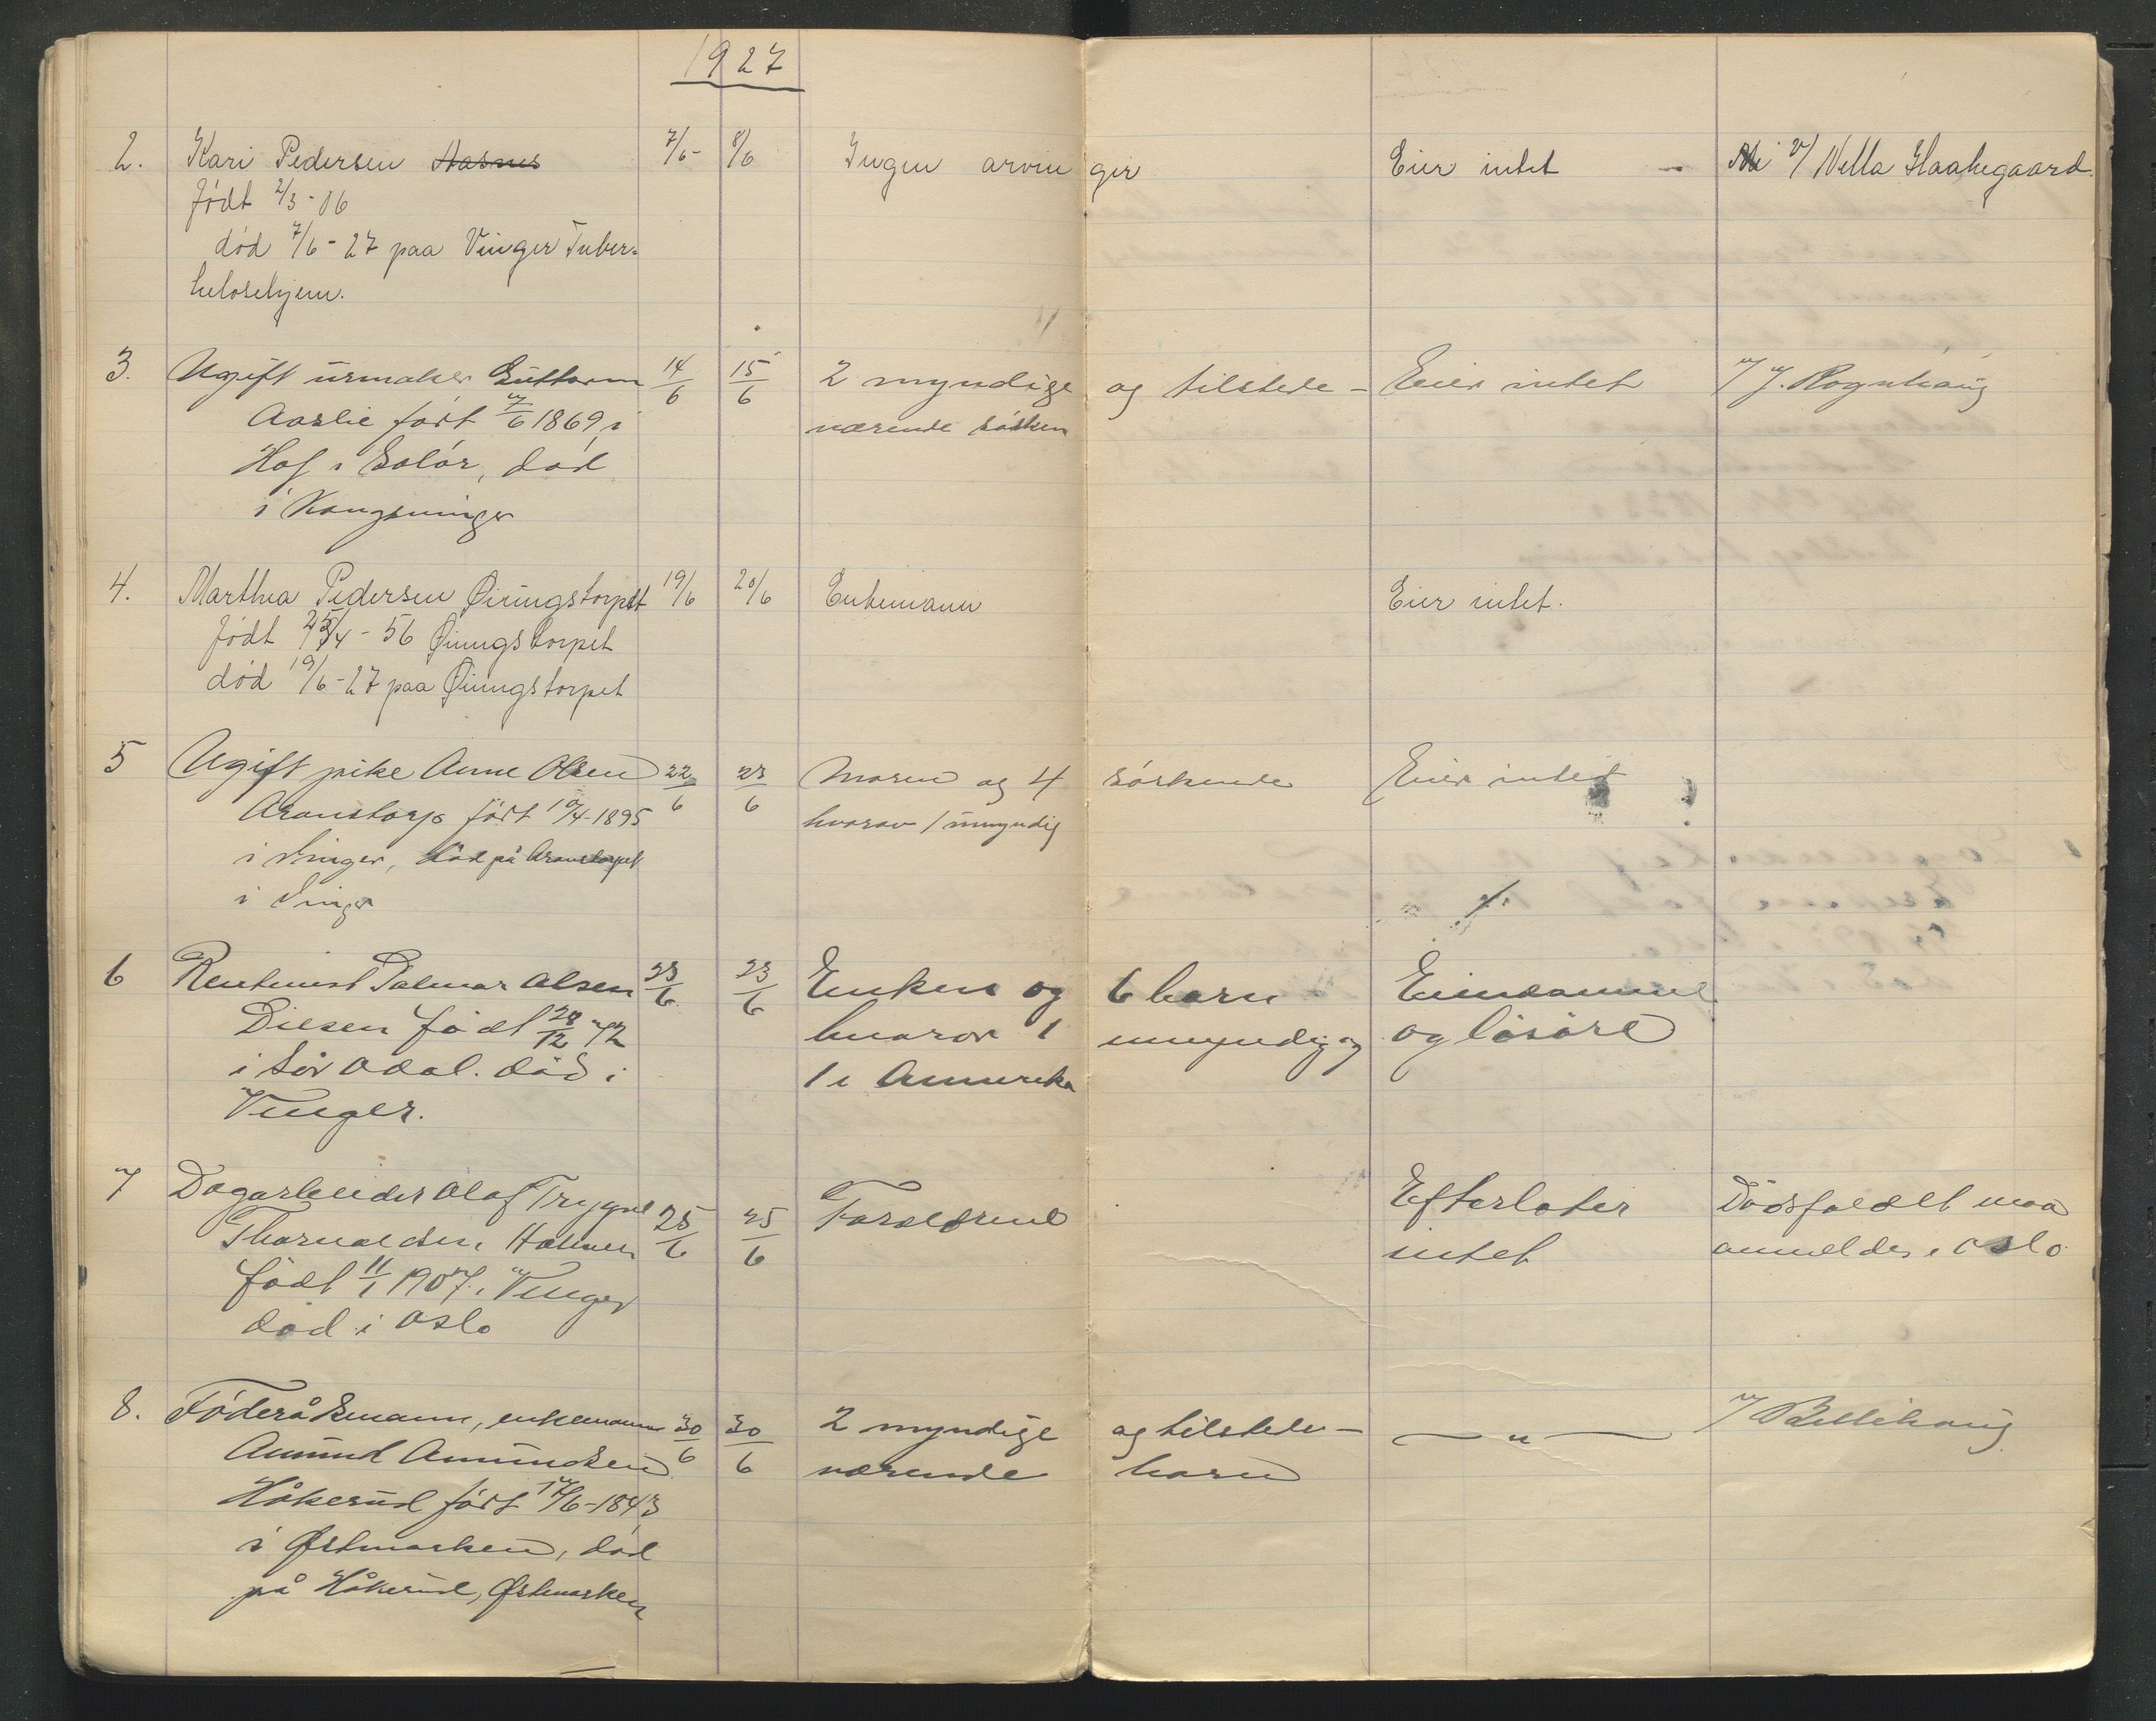 1927
2. Kari Pedersen Hasnes 7/6- 8/6 Ingen arvinger Eier intet - v/ Nella Haakegaard
født 2/3-06
død 7/6-27 paa Vinger Tuber-
kelosehjem.
3. Ugift urmaker Guttorm 14/6 15/6 2 myndige og tilstede- Eier intet v/ J. Rognhaug
Aaslie født 7/6 1869 i værende søsken
Hof i Solør, død
i Kongsvinger
4. Marthea Pedersen Øiungstorpet 19/6 20/6 Enkemann Eier intet.
født /4-56 Øiungstorpet
død 19/6-27 paa Øiungstorpet
5 Ugift pike Anne Olsen 22/6 23/6 Moren og 4 søskende Eier intet
Aronstorp født 10/4-1895 hvorav 1 umyndig
i Vinger, død på Aronstorpet
i Vinger
6 Rentenist Palmar Olsen 23/6 23/6 Enken og 6 barn Eiendommel
Disen født 28/12 42 hvorov 1 umyndig og og løsøre
i Sør Odal. død i 1 i Ammerika
Vinger.
7 Dagarbeider Olaf Trygve 25/6 25/6 Foreldrene Efterloter Dødsfaldet maa
Thorvaldsen Holmen intet anmeldes i Oslo
født 11/1 1907 i Vinger
død i Oslo
8. Føderådsmann, enkemann 30/6 30/6 2 myndige og tilstede- — " — v/ Bellihaug
Amund Amundsen værende barn
Håkerud født 17/6-1843
i Østmarken, død
på Håkerud, Østmarken